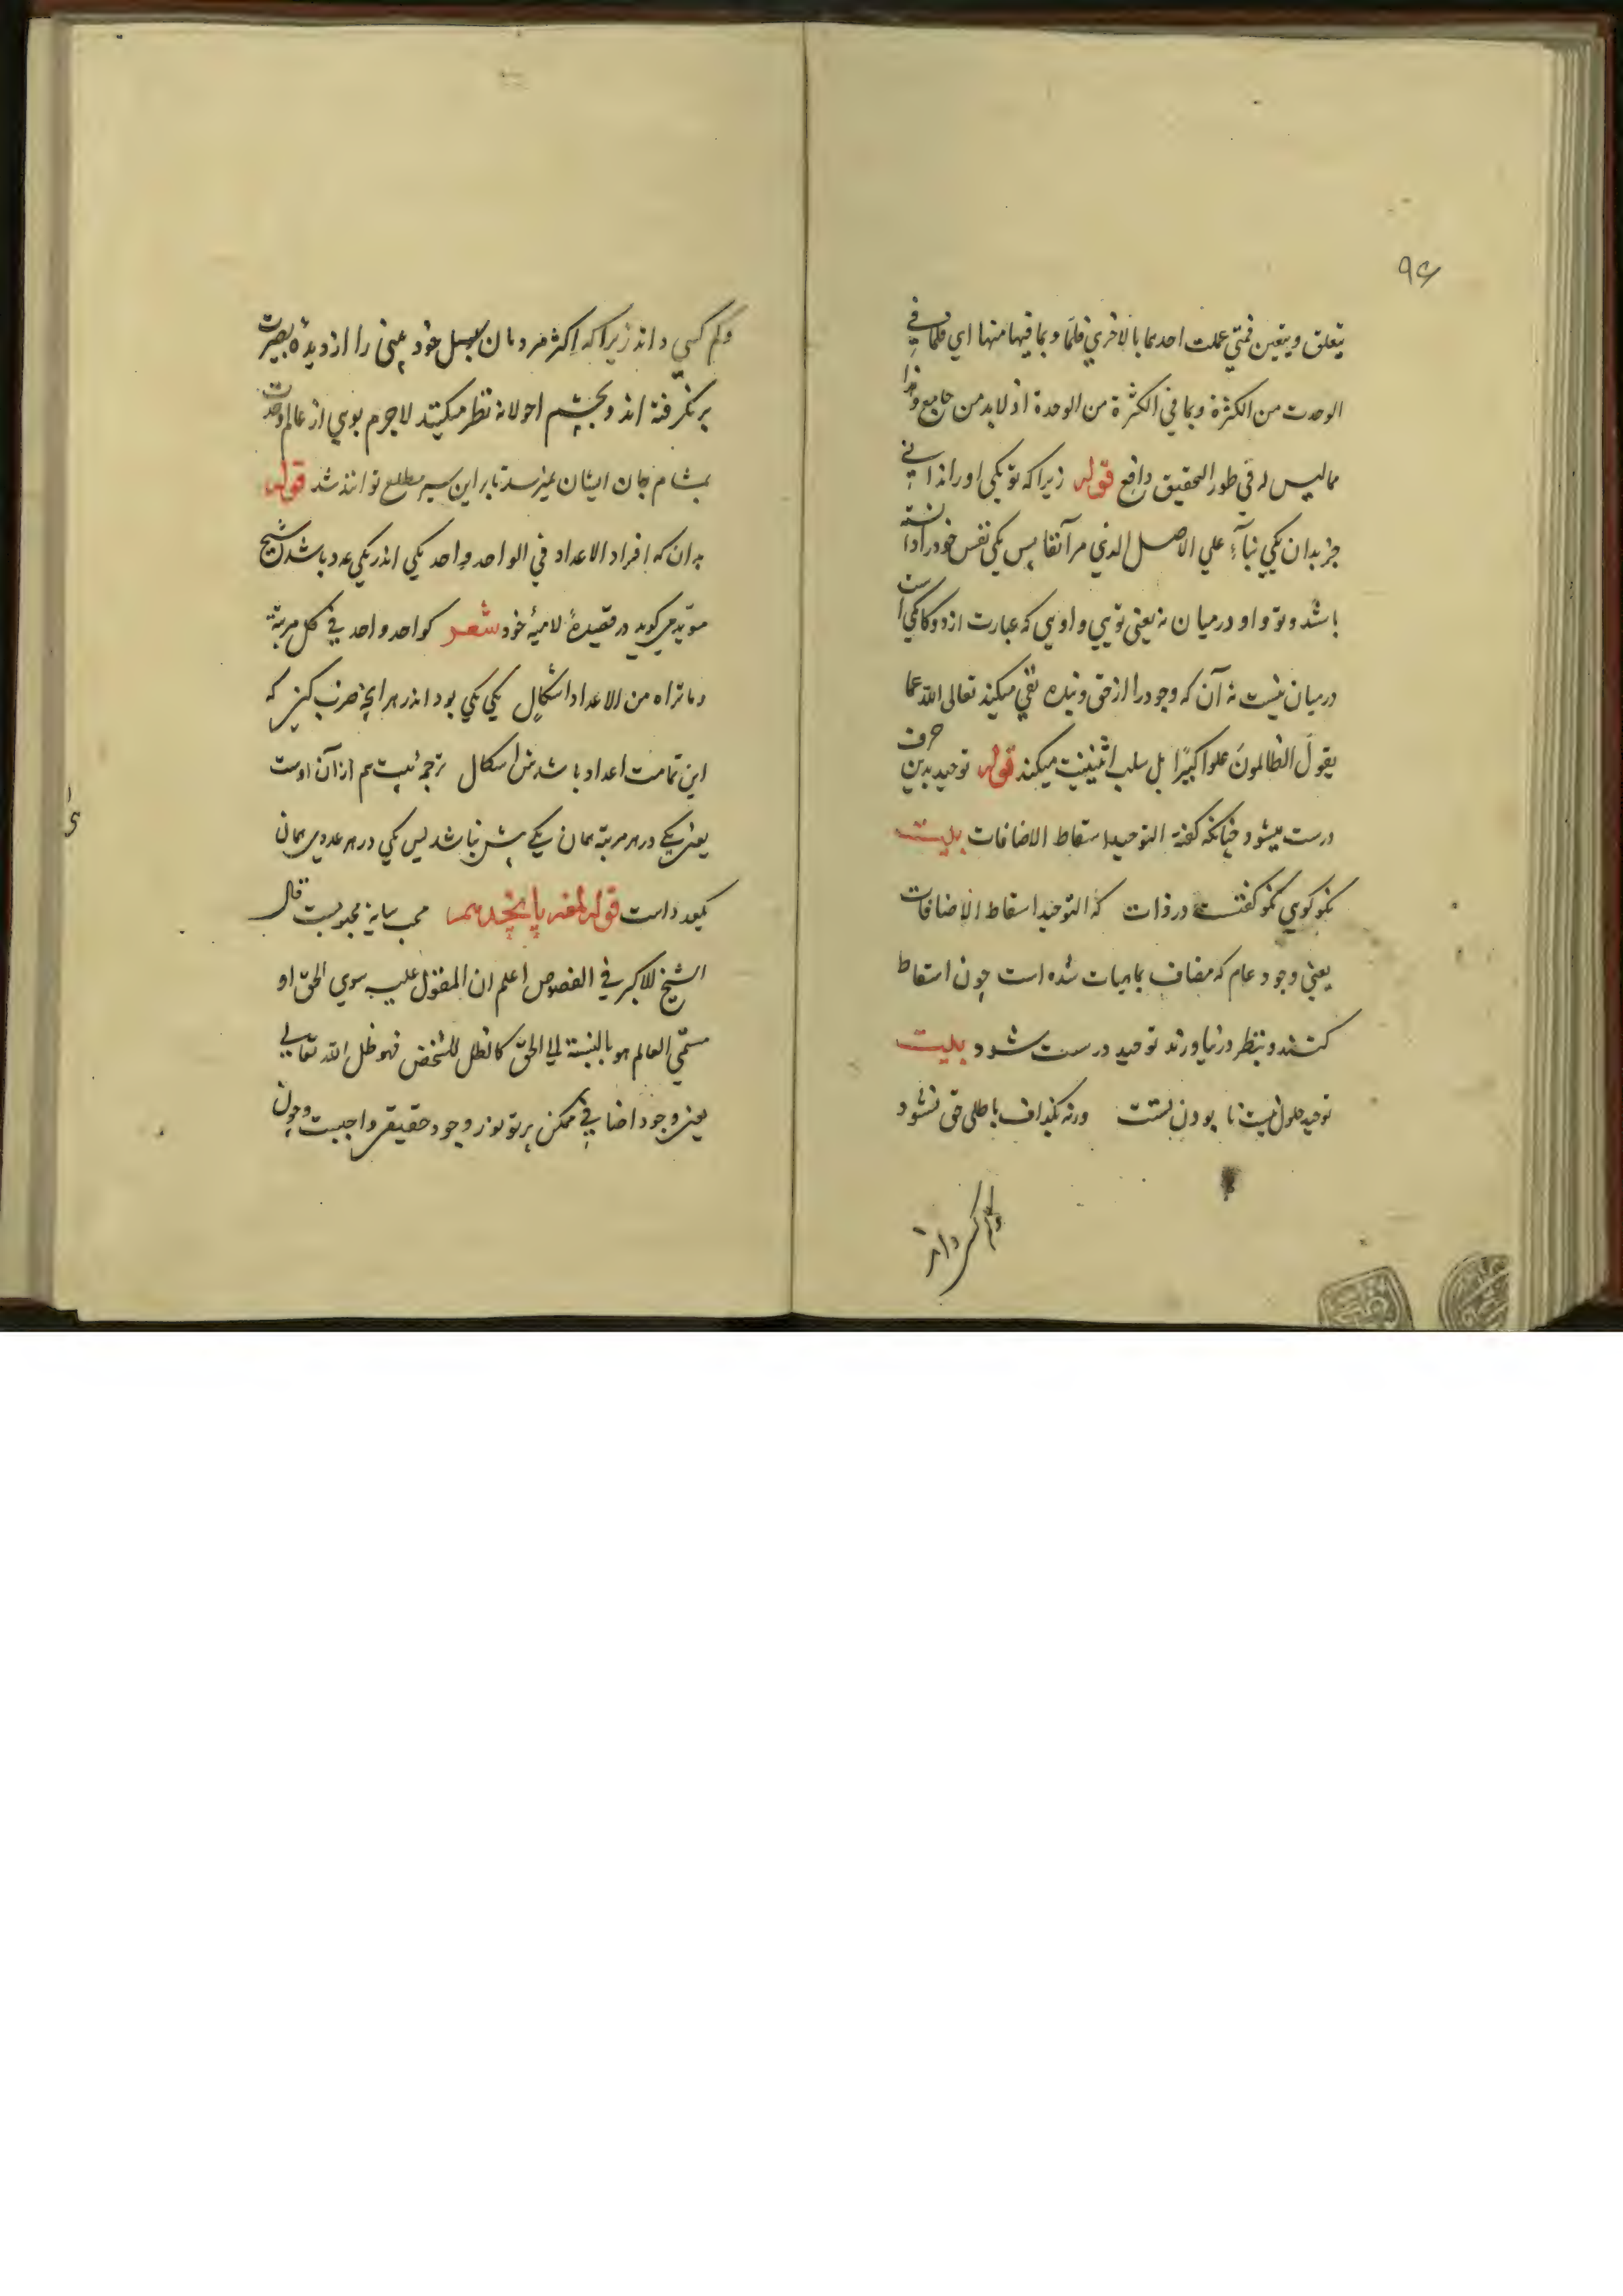 ۹۶
یتعلق ویتعین فمتی عملت احدیهما بالاخری فلما وبما فیها منها ای فلما فی
الوحدت من الکثرة وبما فی الکثرة من الوحدة اذ لابد من جامع وهذا
مما لیس له فی طور التحقیق دافع قوله زیرا که تو یکی اورا ندانی
جز بدان یکی بناءً علی الاصل الذی مر آنفا پس یکی نفس خود را دانسته
باشد وتو و او درمیان نه یعنی تویی و اویی که عبارت از دوکانکی است
درمیان نیست نه آن که وجود را از حق و بنده نفی میکند تعالی الله عما
یقول الظالمونَ علوا کبیرًا بل سلب اثنینیت میکند قوله توحید بدین حرف
درست میشود چنانکه گفته التوحید اسقاط الاضافات بیت
نکوکوی نکو گفتست در ذات که التوحید اسقاط الاضافات
یعنی وجود عام که مضاف بماهیات شده است چون اسقاط
کنند و بنظر در نیاورند توحید درست شود بیت
توحید حلول نیست نابودن تست ورنه بگذاف باطلی حق نشود
وکم کسی داند
وکم کسی داند زیرا که اکثر مردمان سبل خود بینی را از دیده بصیرت
برنگرفته اند وبچشم احولانه نظر میکنند لاجرم بوی از عالم وحدت
بمشام جان ایشان نمیرسد تا بر این سیر مطلع توانند شد قوله
بدان که افراد الاعداد فی الواحد واحد یکی اندر یکی عدد باشد شیخ
موید میگوید در قصیدهٔ لامیهٔ خود شعر کواحد واحد فی کل مرتبة
وما تراه من الاعداد اشکالٍ یکی یکی بود اندر هر آنچه ضرب کنی که
این تمامت اعداد باشدش اشکال ترجمه بیت هم از آن اوست
یعنی یکی در هر مرتبه همان یکی بیش نباشد پس یکی در هر عددی همان
یکعدد است قوله لمعه پانجدهم محب سایهٔ محبوبست قال
الشیخ الاکبر فی الفصوص اعلم ان المقول علیه سوی الحقّ او
مسمّی العالم هو بالنسبة الی الحقّ کالظل للشخص فهو ظل الله تعالی
یعنی وجود اضافی ممکن پرتو نور وجود حقیقی واجبست وچون